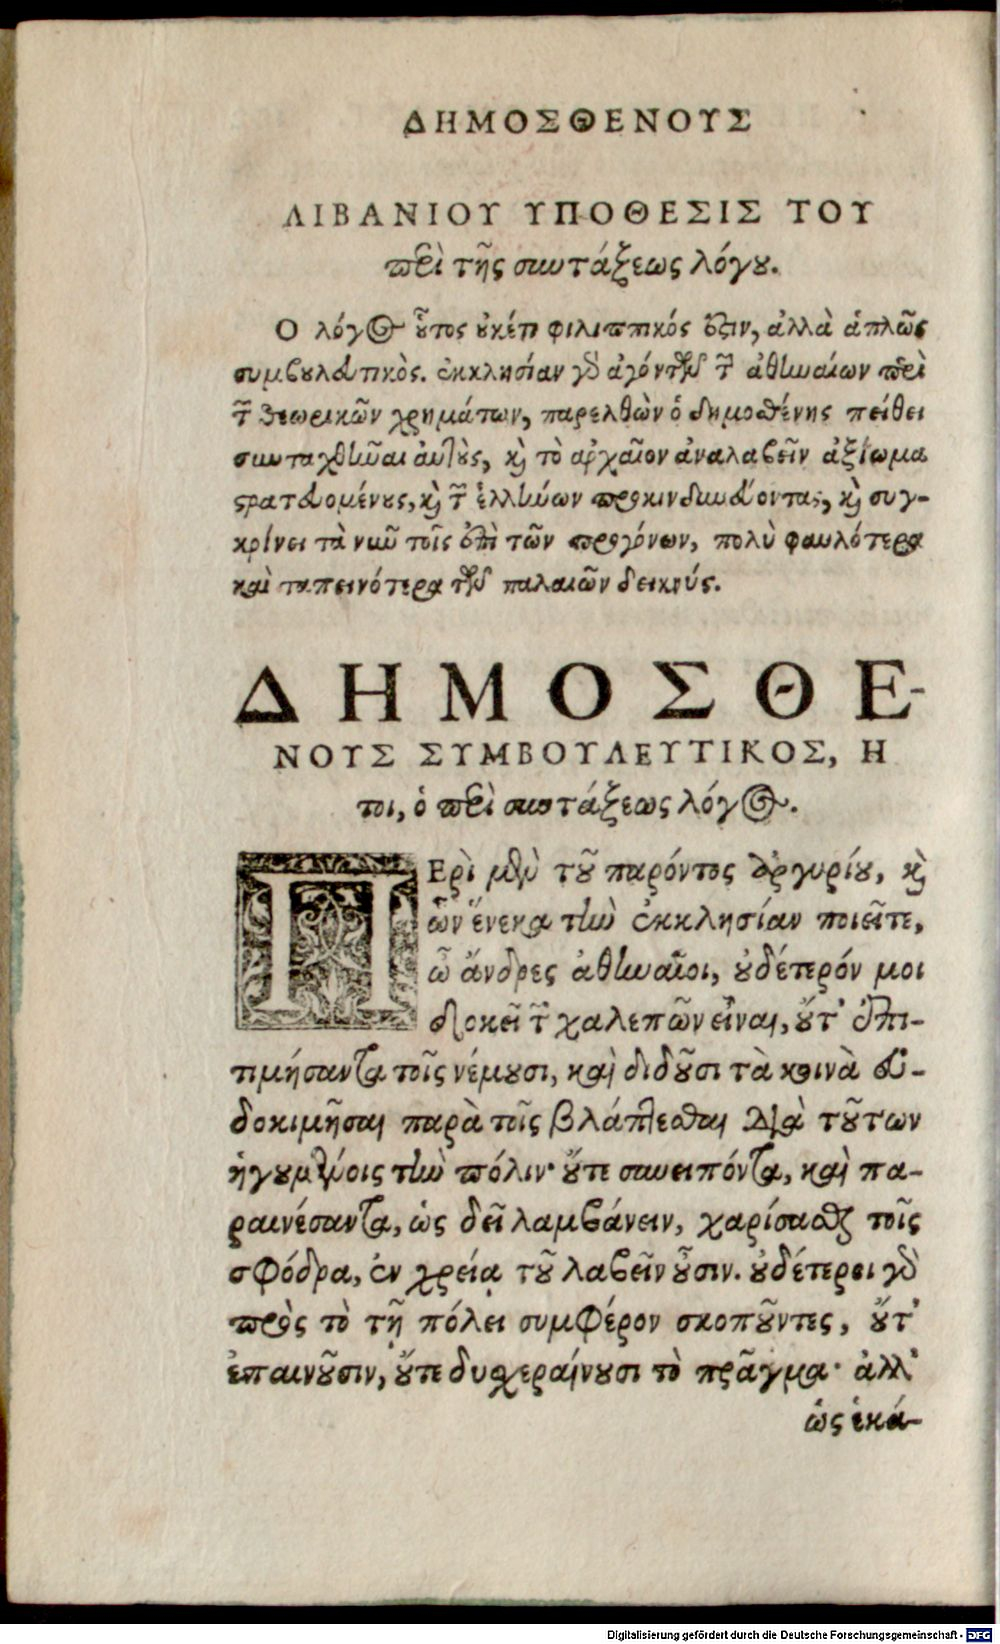 ΔΗΜΟΣΘΕΝΟΥΣ
ΛΙΒΑΝΙΟΥ ΥΠΟΘΕΣΙΣ ΤΟΥ
περὶ τῆς συντάξεως λόγου.
Ο λόγος οὗτος οὐκέτι φιλιππικός ἐστιν, ἀλλὰ ἁπλῶς
συμβουλευτικὸς. ἐκκλησίαν γὸ ἀγόντων τ῀ ἀθηναίων περὶ
τ῀ θεωρικῶν χρημάτων, παρελθὼν ὁ δημοσθένης πείθει
συνταχθῆναι αὐτοὺς, κὶ τὸ ἀρχαῖον ἀναλαβεῖν ἀξίωμα
στρατευομένους, κὶ τ῀ ἑλλήνων προκινδυνεύοντας, κὶ συγ-
κρίνει τὰ νῦν τοῖς ἐπὶ τῶν προγόνων, πολὺ φαυλότερα
καὶ ταπεινότερα τῶν παλαιῶν δεικνύς.
ΔΗΜΟΣΘΕ-
ΝΟΥΣ ΣΥΜΒΟΥΛΕΥΤΙΚΟΣ, Η
τοι, ὁ περὶ συντάξεως λόγος.
ΠΕρὶ μὲν τοῦ παρόντος ἀργυρίου, κὶ
ὧν ἕνεκα τὴν ἐκκλησίαν ποιεῖτε,
ὦ ἄνδρες ἀθηναῖοι, οὐδέτερόν μοι
δοκεῖ τ῀ χαλεπῶν εἶναι, οὔτ' ἐπι-
τιμήσαντα τοῖς νέμουσι, καὶ διδοῦσι τὰ κοινὰ εὐ-
δοκιμῆσαι παρὰ τοῖς βλάπτεσθαι διὰ τούτων
ἡγουμένοις τὴν πόλιν· οὔτε συνειπόντα, καὶ πα-
ραινέσαντα, ὡς δεῖ λαμβάνειν, χαρίσασθαι τοῖς
σφόδρα, ἐν χρείᾳ τοῦ λαβεῖν οὖσιν. οὐδέτεροι γὸ
πρὸς τὸ τῇ πόλει συμφέρον σκοποῦντες, οὔτ'
ἐπαινοῦσιν, οὔτε δυσχεραίνουσι τὸ πρᾶγμα· ἀλλ'
ὡς ἑκά-
Digitalisierung gefördert durch die Deutsche Forschungsgemeinschaft - DFG